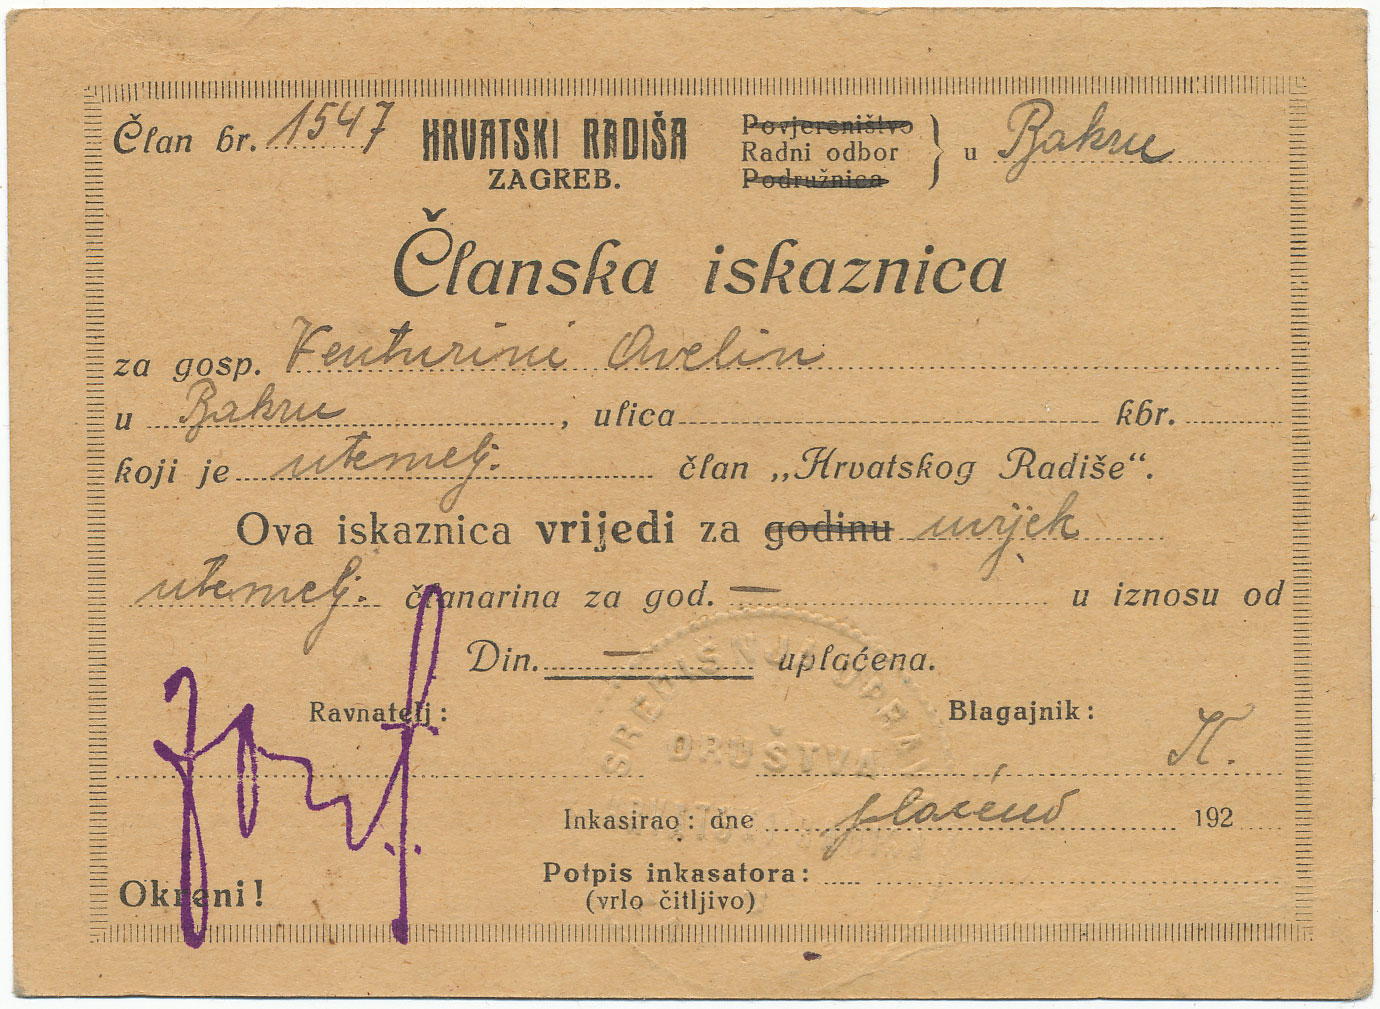 Član br. 1547
HRVATSKI RADIŠA
ZAGREB.
Povjereništvo
Radni odbor
Podružnica
u Bakru
Članska iskaznica
za gosp. Venturini Avelin
u Bakru, ulica kbr.
koji je utemelj. član „Hrvatskog Radiše“.
Ova iskaznica vrijedi za godinu uvijek
utemelj. članarina za god. — u iznosu od
Din. — uplaćena.
Ravnatelj: Blagajnik:
Inkasirao: dne plaćeno 192
Potpis inkasatora:
(vrlo čitljivo)
Okreni!
SREDIŠNJA UPRAVA
DRUŠTVA